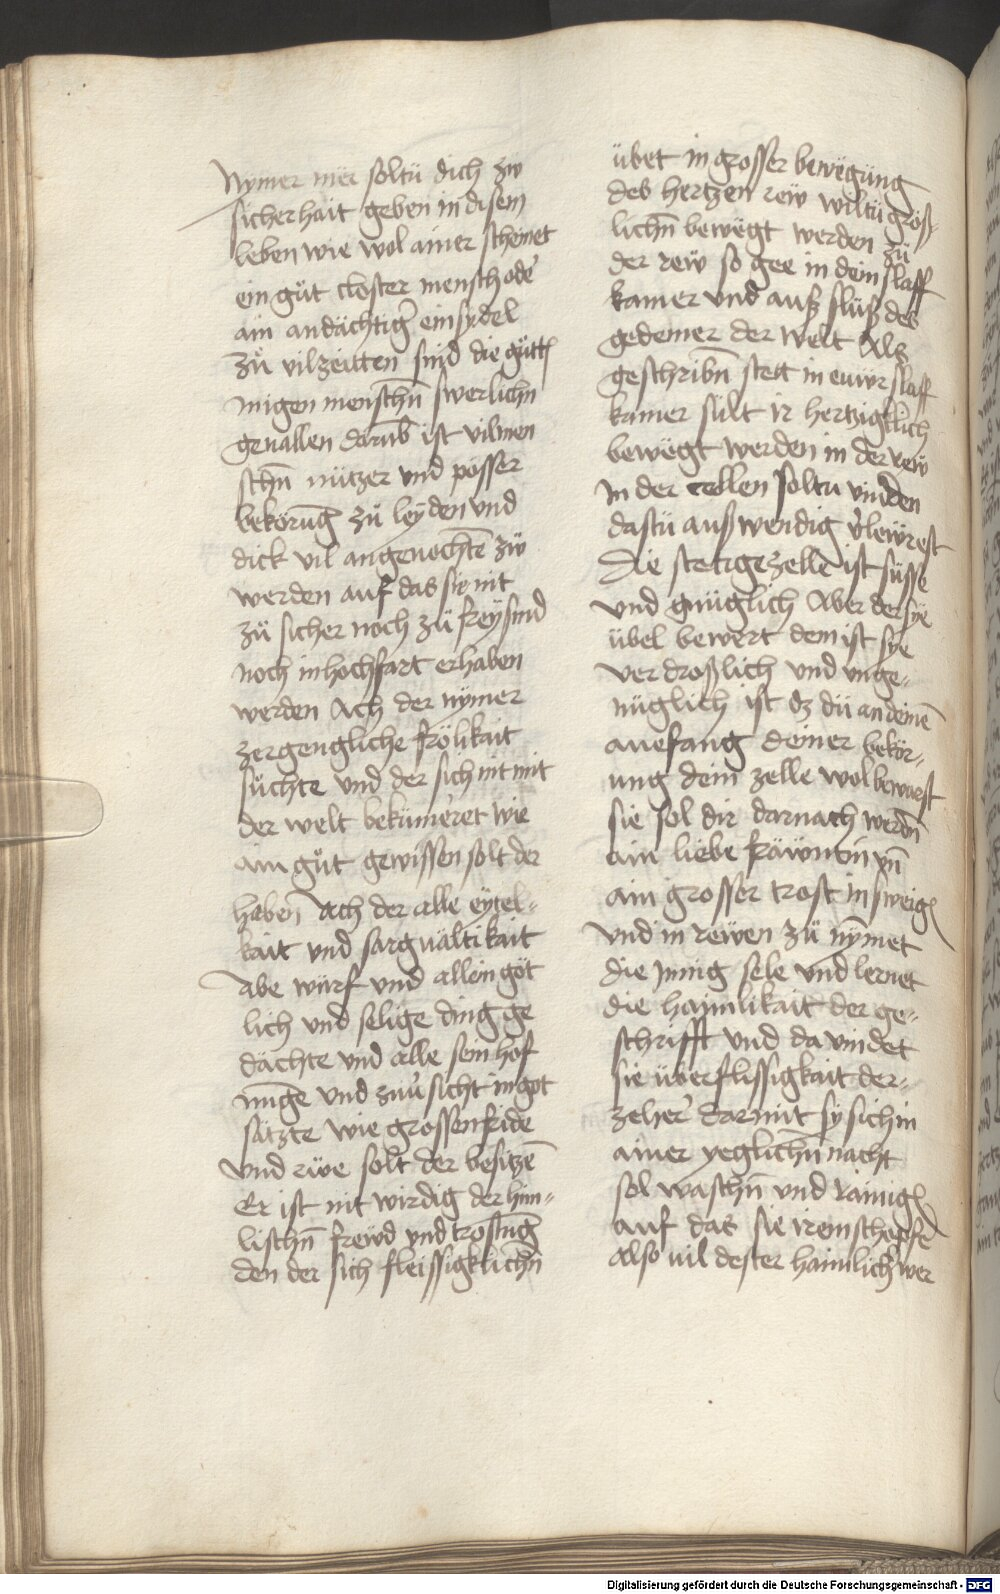 Nymer mër soltu dich zw
sicherhait geben in disem
leben wie wol ainer scheinet
ein gůt closter mensch ode᷑
ain andächtig᷑ einsydel
Zů vilzeitten sind die gůtt
migen mensch̄n swerlichn̄
geuallen darūb ist vil men
schn̄ nützer vnd pösser
bekörūg zů leyden vnd
dick vil angenochtē zů
werden auf das sie nit
zů sicher noch zů frey sind
noch in hochfart erhaben
werden Ach der nymer
zergengliche frölikait
sůchte vnd der sich nit mit
der welt bekumeret wie
ain gůt gewissen solt der
haben Ach der alle eytel-
kait vnd sarguältikait
Abe würf vnd allein göt
lich vnd selige ding ge
dächte vnd alle sein hof
nunge vnd zuu᷑sicht in got
sätzte wie grossen fride
vnd rwe solt der besitzē
Er ist nit wirdig der him-
lischn̄ frewd vnd trostūg
den der sich fleissigklichn̄
übet in grosser bewëgüng
des hertzen rew wiltu gröss-
lichn̄ bewëgt werden zü
der rew so gee in dein slaff
kamer vnd auss sluss des
gedemer der welt Als
geschribn̄ stett in euwr slaff
kamer sült ir hertzigklich
bewëgt werden in der rew
In der cellen soltu vinden
das tu ausswendig v᷑lewrest
Die stetige zelle ist süsse
vnd gnüglich Aber der sye
übel bewert dem ist sye
verdrosslich vnd vnge-
nüglich ist dz dü an deinē
anefang deiner bekör-
ung dein zelle wol bewarst
sie sol dir darnach werdn̄
ain liebe fräwntin vn̄
ain grosser trost in sweig
vnd in rëwen zü nȳmet
die Jnnig sele vnd lernet
die haimlikait der ge-
schrifft vnd da vindet
sie überflissigkait der-
zeher᷑ dar mit sy sich in
ainer yeglichn̄ nacht
sol waschn̄ vnd rainig
auf das sie irem schöpfē
Also vil dester haimlich᷑ wer
Digitalisierung gefördert durch die Deutsche Forschungsgemeinschaft - DFG